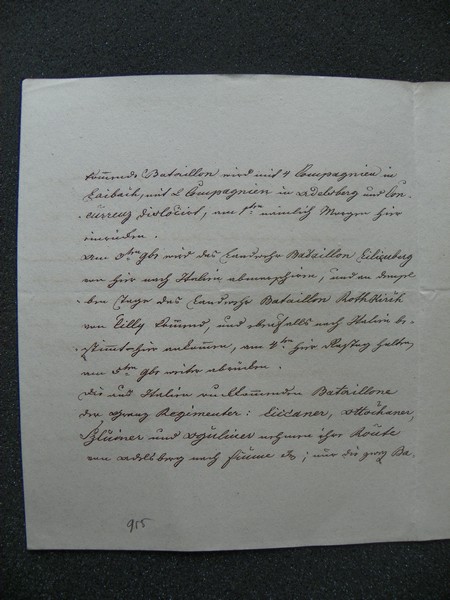 kommende Bataillon wird mit 4 Compagnien in
Laibach, mit 2 Compagnien in Adelsberg und Con-
curreuz dislocirt, am 1ten nämlich Morgen hier
einrücken.
Am 3ten gbs wird das Landwehr Bataillon Lilienberg
von hier nach Italien abmarschiren, und an demsel-
ben Tage das Landwehr Bataillon Rothkirch
von Cilly kommend, und ebenfalls nach Italien be-
stimmt hier ankommen, am 4ten hier Rasttag halten,
am 5ten gbs weiter abrücken.
Die aus Italien rückkommenden Bataillone
der Granz Regimenter: Liccaner, Ottochaner,
Szluiner und Oguliner nehmen ihre Route
von Adelsberg nach Fiume; nur die zwey Ba-
915